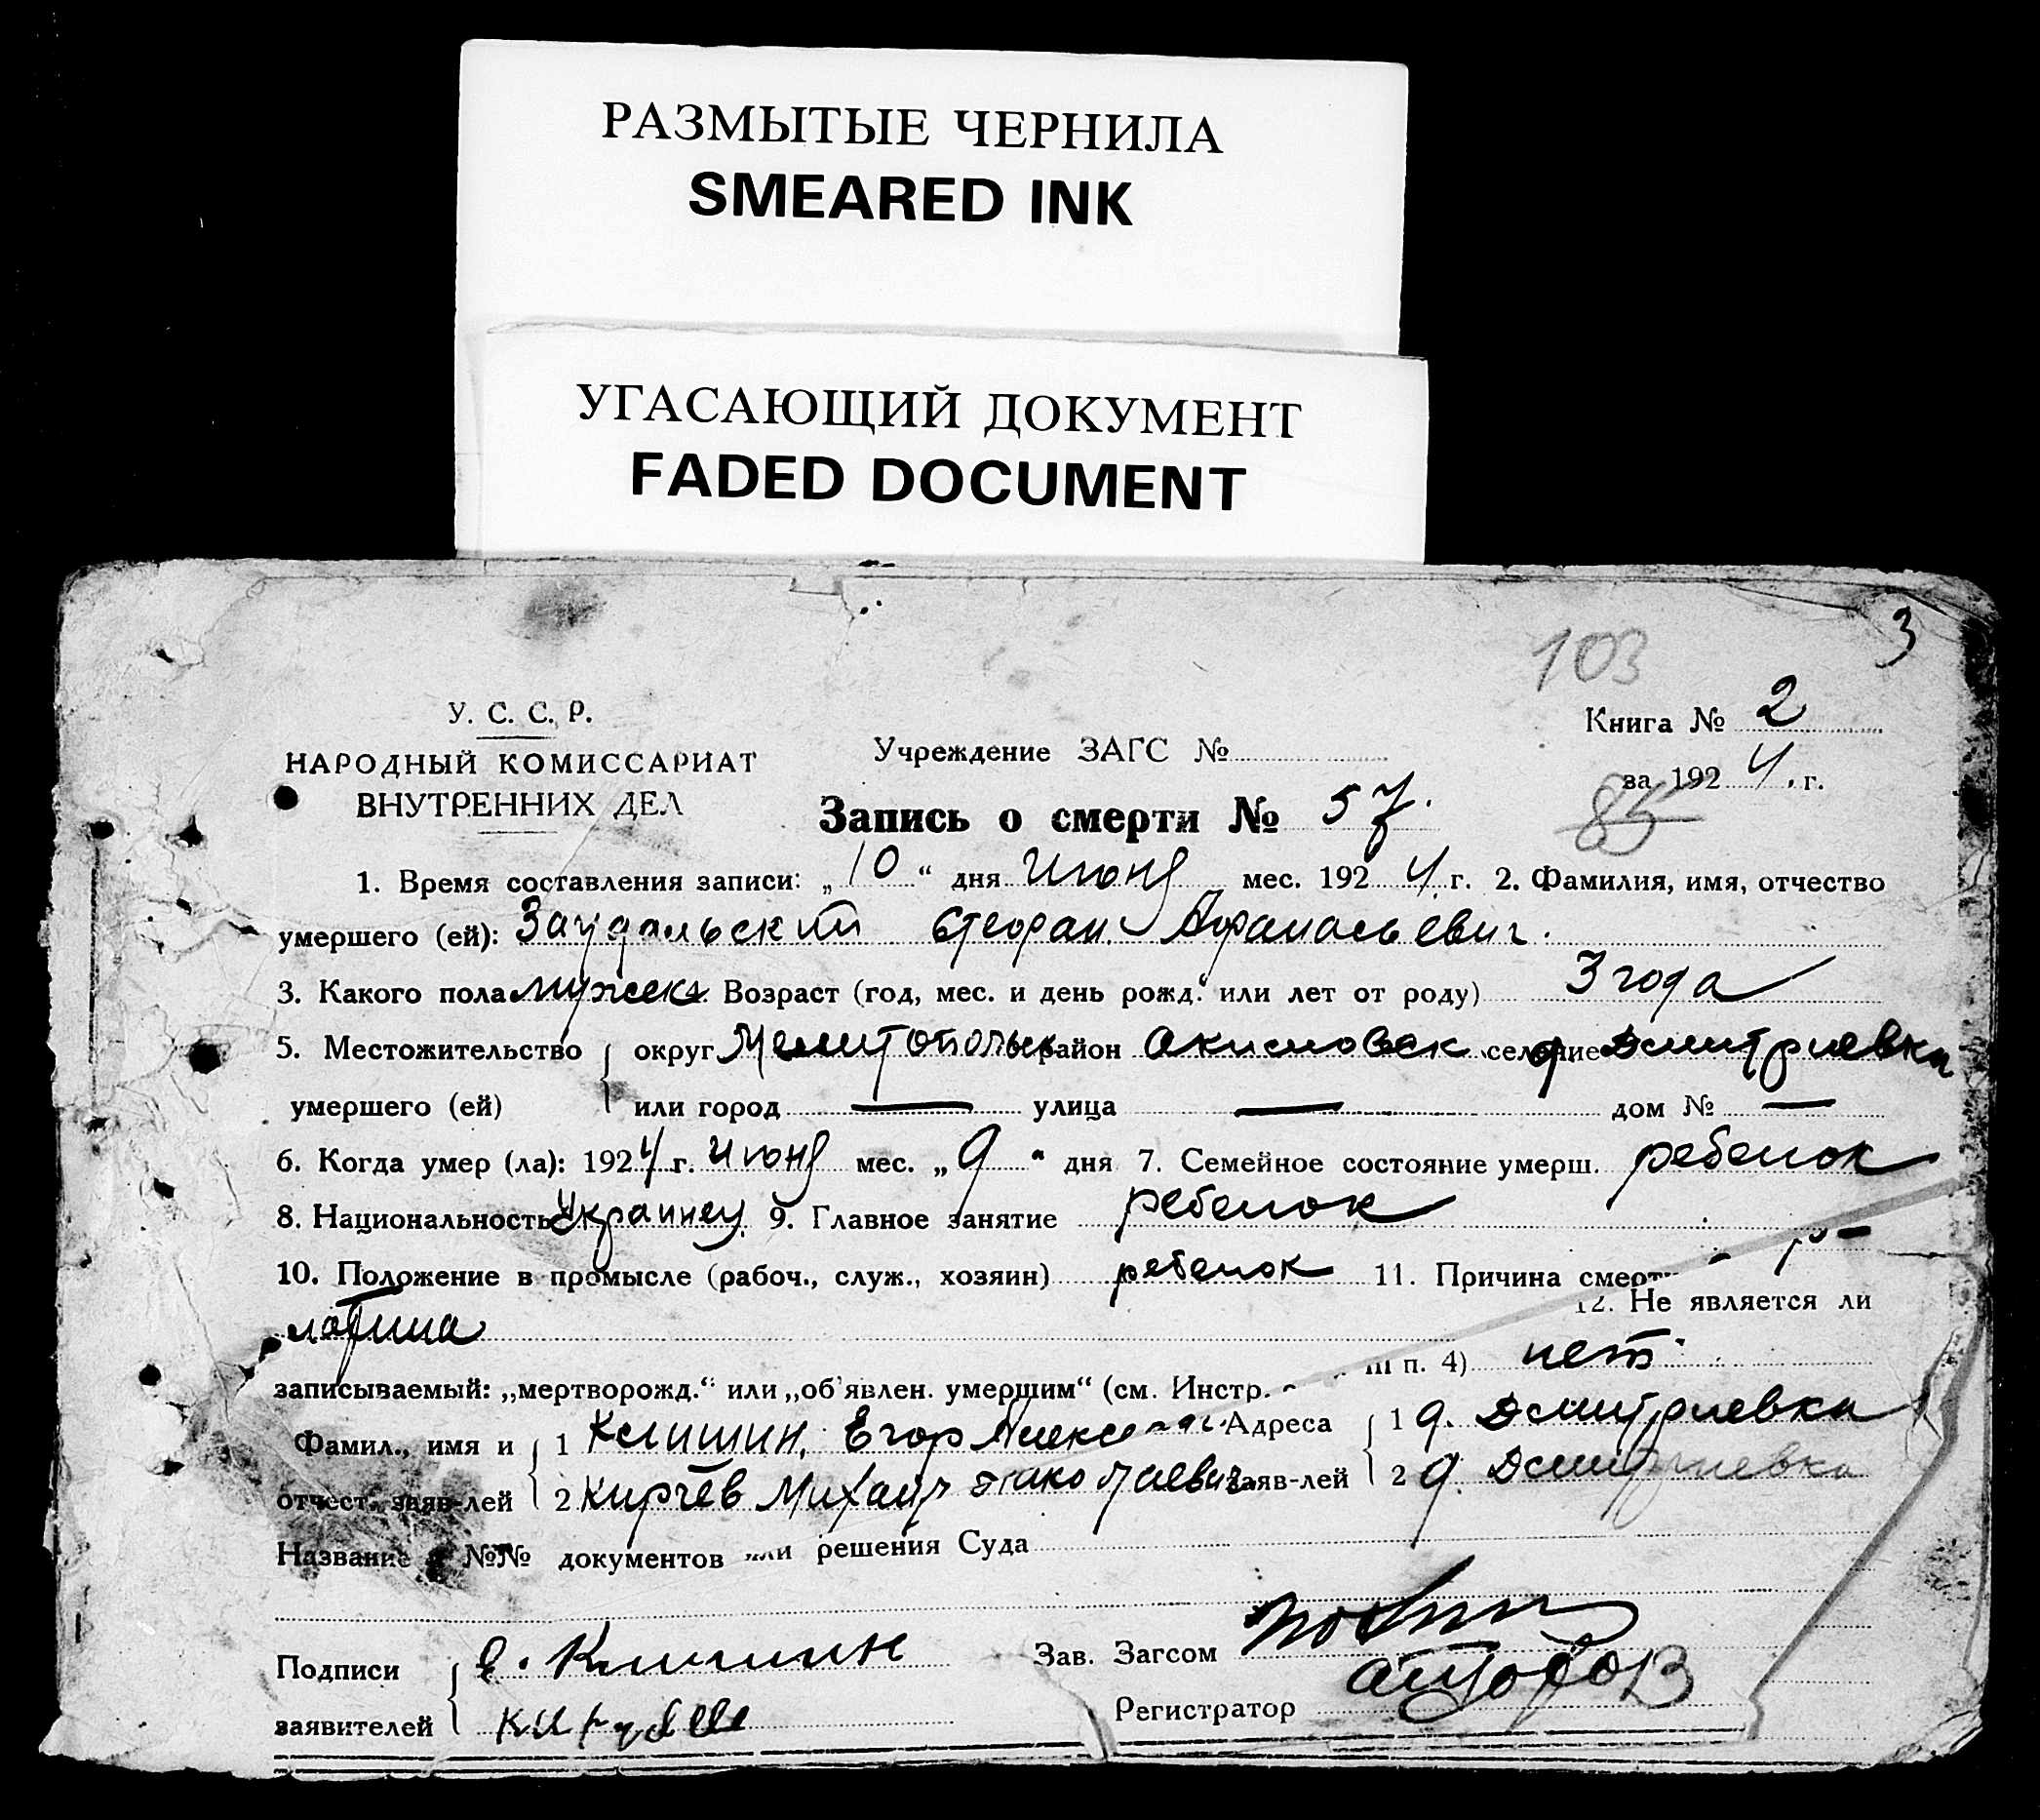 РАЗМЫТЫЕ ЧЕРНИЛА
SMEARED INK
УГАСАЮЩИЙ ДОКУМЕНТ
FADED DOCUMENT
3
103
У. С. С. Р.
Книга № 2
НАРОДНЫЙ КОМИССАРИАТ
Учреждение ЗАГС №
за 1924 г.
ВНУТРЕННИХ ДЕЛ
Запись о смерти № 57.
85
1. Время составления записи: „10“ дня Июня мес. 1924 г. 2. Фамилия, имя, отчество
умершего (ей): Стефан Афанасьевич.
3. Какого пола мужск. Возраст (год, мес. и день рожд. или лет от роду) 3 года
5. Местожительство округ Мелитопольск район Акимовск селение д. Дмитриевка
умершего (ей) или город — улица — дом № —
6. Когда умер (ла): 1924 г. Июня мес. „9“ дня 7. Семейное состояние умерш. ребенок
8. Национальность Украинец 9. Главное занятие ребенок
10. Положение в промысле (рабоч., служ., хозяин) ребенок 11. Причина
12. Не является ли
записываемый: „мертворожд.“ или „об'явлен. умершим“ (см. Инстр. п. 4) нет
Фамил., имя и 1 Клишин, Егор Адреса 1 д. Дмитриевка
отчест. заяв-лей 2 Михаил заяв-лей 2 д. Дмитриевка
Название и №№ документов или решения Суда
Подписи Е. Клишин Зав. Загсом
заявителей Регистратор